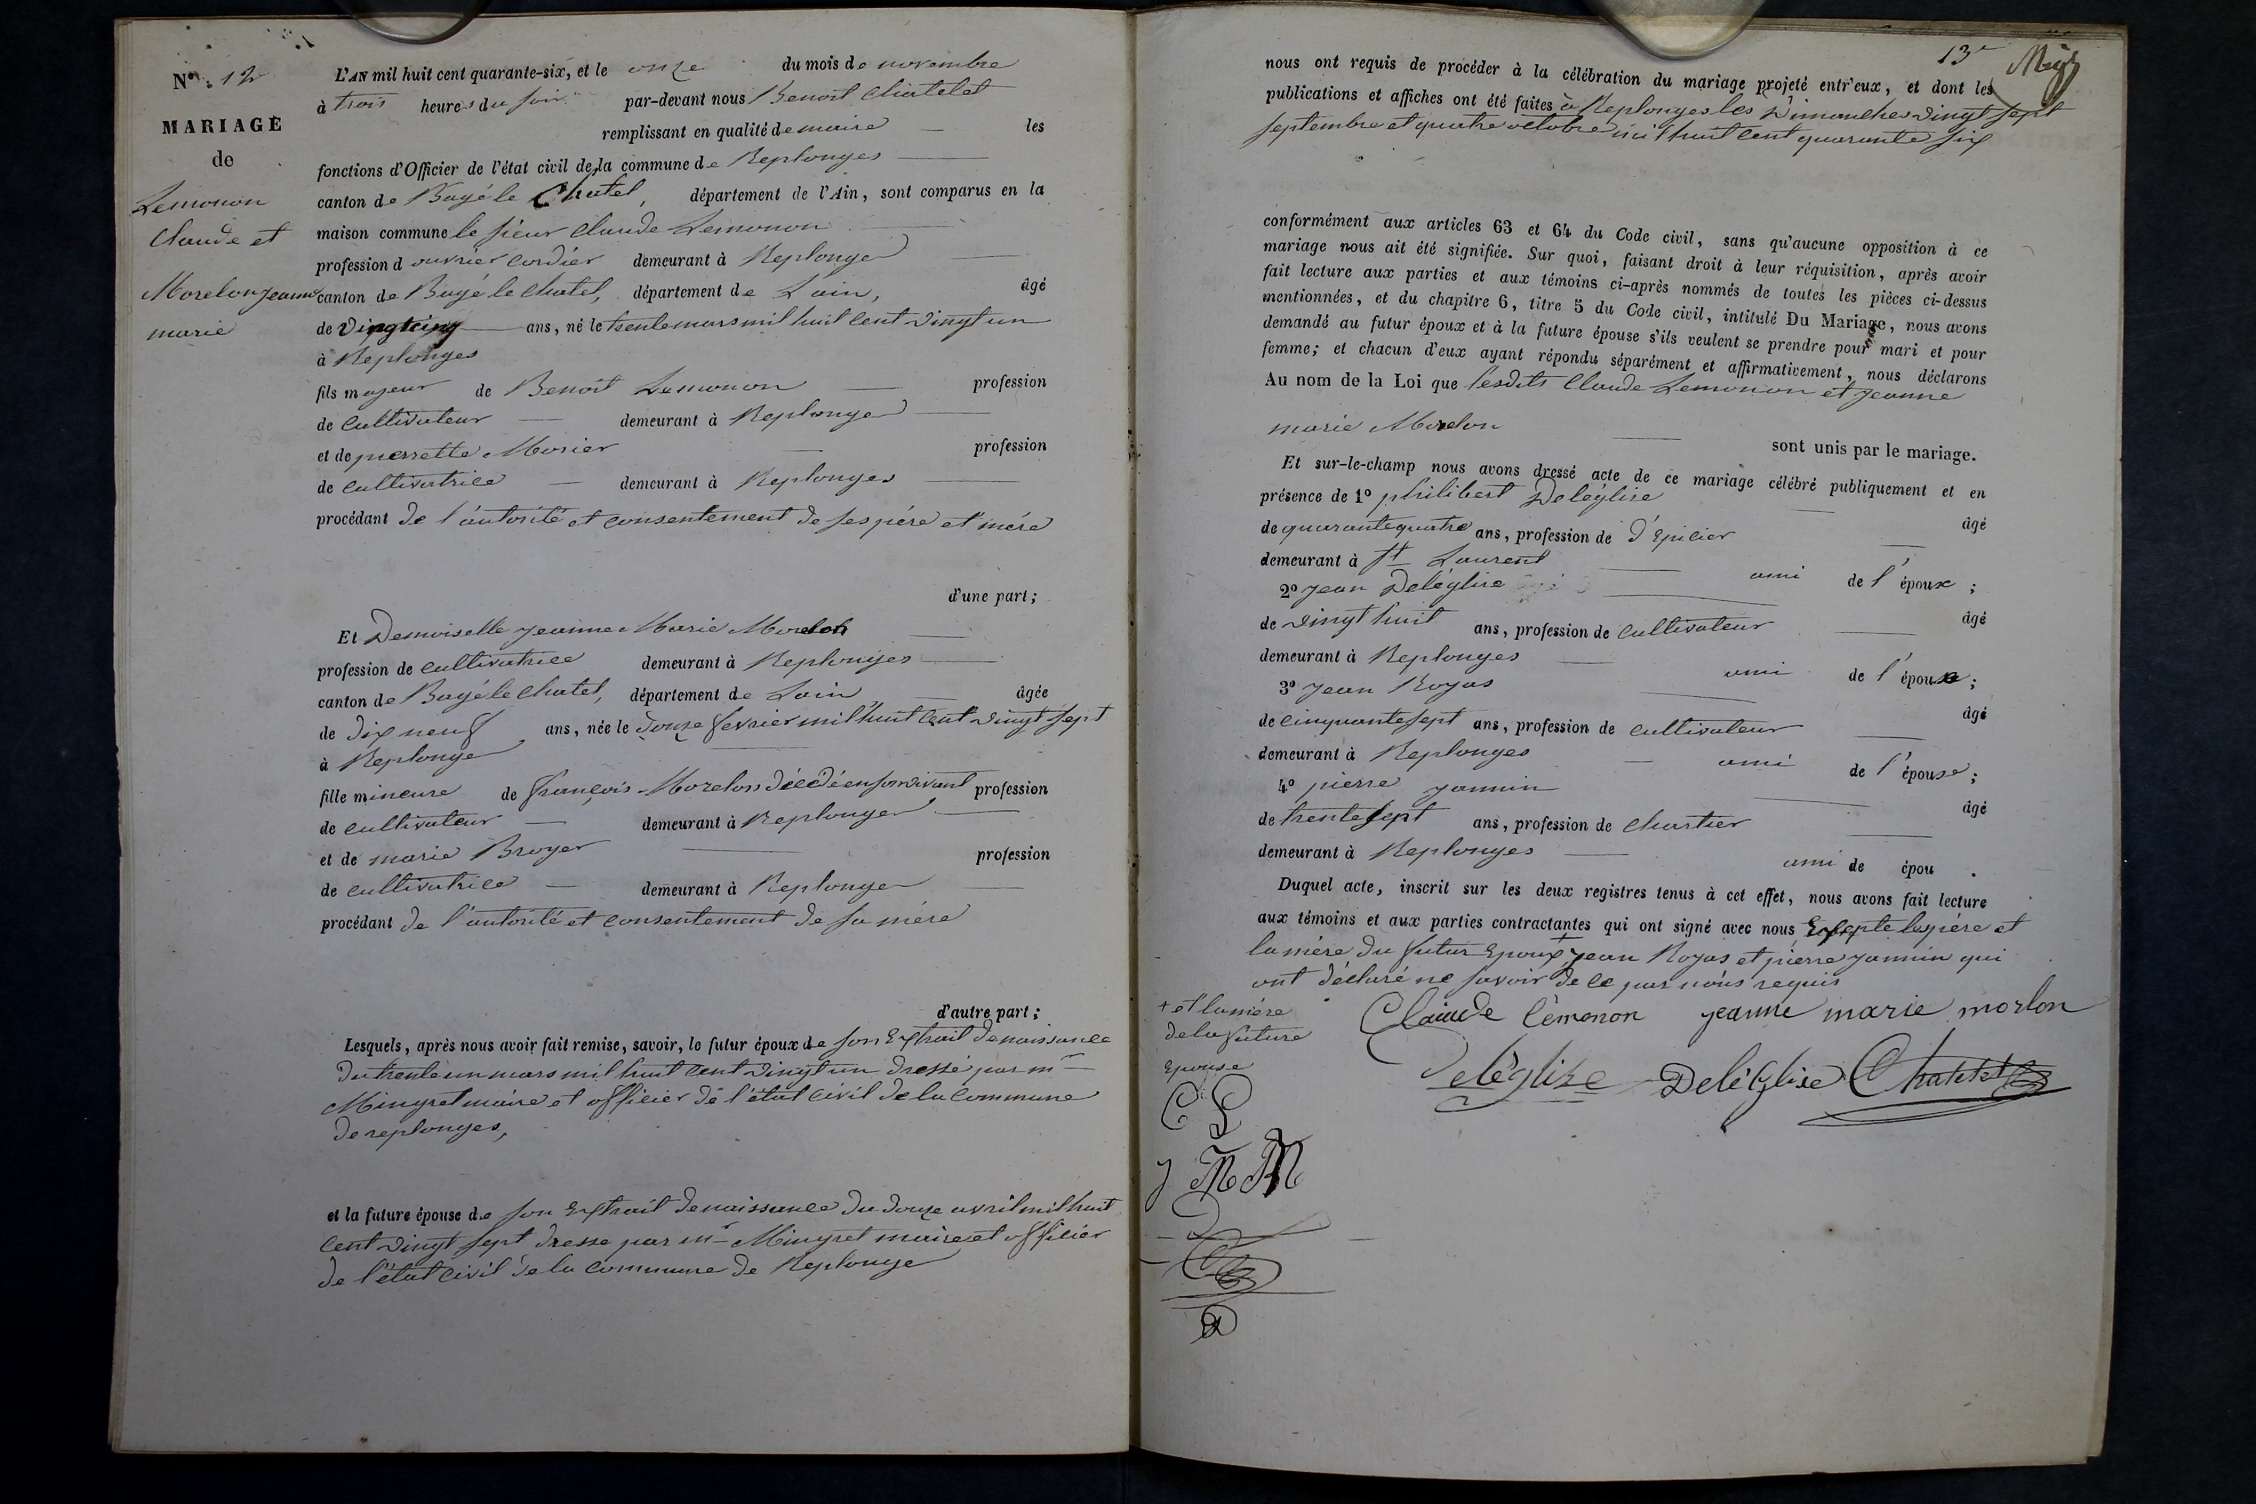 N° 12
MARIAGE
de
Lemonon
Claude et
Morelon jeanne
marie
L'AN mil huit cent quarante-six, et le onze du mois de novembre
à trois heures du soir par-devant nous Benoit Chatelet
remplissant en qualité de maire les
fonctions d'Officier de l'état civil de la commune de Replonges
canton de Bagé le Chatel, département de l'Ain, sont comparus en la
maison commune le sieur Claude Lemonon
profession d ouvrier cordier demeurant à Replonge
canton de Bagé le Chatel, département de Lain, âgé
de vingtcinq ans, né le trente mars mil huit cent vingt un
à Replonges
fils majeur de Benoit Lemonon profession
de cultivateur demeurant à Replonge
et de pierrette Morier profession
de cultivatrice demeurant à Replonges
procédant de l'autorité et consentement de ses pére et mére
d'une part;
Et Demoiselle jeanne Marie Morelon
profession de cultivatrice demeurant à Replonges
canton de Bagé le Chatel, département de Lain âgée
de dix neuf ans, née le douze fevrier mil huit cent vingt sept
à Replonge
fille mineure de françois Morelon décédé en son vivant profession
de cultivateur demeurant à Replonge
et de marie Broyer profession
de cultivatrice demeurant à Replonge
procédant de l'autorité et consentement de sa mére
d'autre part;
Lesquels, après nous avoir fait remise, savoir, le futur époux de son Extrait de naissance
du trente un mars mil huit cent vingt un dressé par mr
Mingret maire et officier de l'état civil de la commune
de replonges,
et la future épouse de son Extrait de naissance du douze avril mil huit
cent vingt sept dresse par mr Mingret maire et officier
de l'état civil de la commune de Replonge
13e
nous ont requis de procéder à la célébration du mariage projeté entr'eux, et dont les
publications et affiches ont été faites à Replonges les Dimanches vingt sept
septembre et quatre octobre mil huit cent quarante six
conformément aux articles 63 et 64 du Code civil, sans qu'aucune opposition à ce
mariage nous ait été signifiée. Sur quoi, faisant droit à leur réquisition, après avoir
fait lecture aux parties et aux témoins ci-après nommés de toutes les pièces ci-dessus
mentionnées, et du chapitre 6, titre 5 du Code civil, intitulé Du Mariage, nous avons
demandé au futur époux et à la future épouse s'ils veulent se prendre pour mari et pour
femme; et chacun d'eux ayant répondu séparément et affirmativement, nous déclarons
Au nom de la Loi que lesdits Claude Lemonon et jeanne
marie Morelon
sont unis par le mariage.
Et sur-le-champ nous avons dressé acte de ce mariage célébré publiquement et en
présence de 1° philibert Deléglise
de quarante quatre ans, profession de d'Epicier âgé
demeurant à St Laurent
ami de l'époux;
2° jean Deléglise
de vingt huit ans, profession de cultivateur âgé
demeurant à Replonges
ami de l'époux;
3° jean Royas
de cinquante sept ans, profession de cultivateur âgé
demeurant à Replonges
ami de l'épouse;
4° pierre jannin
de trente sept ans, profession de chartier âgé
demeurant à Replonges
ami de épou .
Duquel acte, inscrit sur les deux registres tenus à cet effet, nous avons fait lecture
aux témoins et aux parties contractantes qui ont signé avec nous Excepte le pére et
la mére du futur Epoux + jean Royas et pierre jannin qui
ont déclaré ne savoir de ce par nous requis
+ et la mére
de la future
Epouse
Claude lémonon jeanne marie morlon
deléglise Deléglise Chatelet
C L
J M M
D